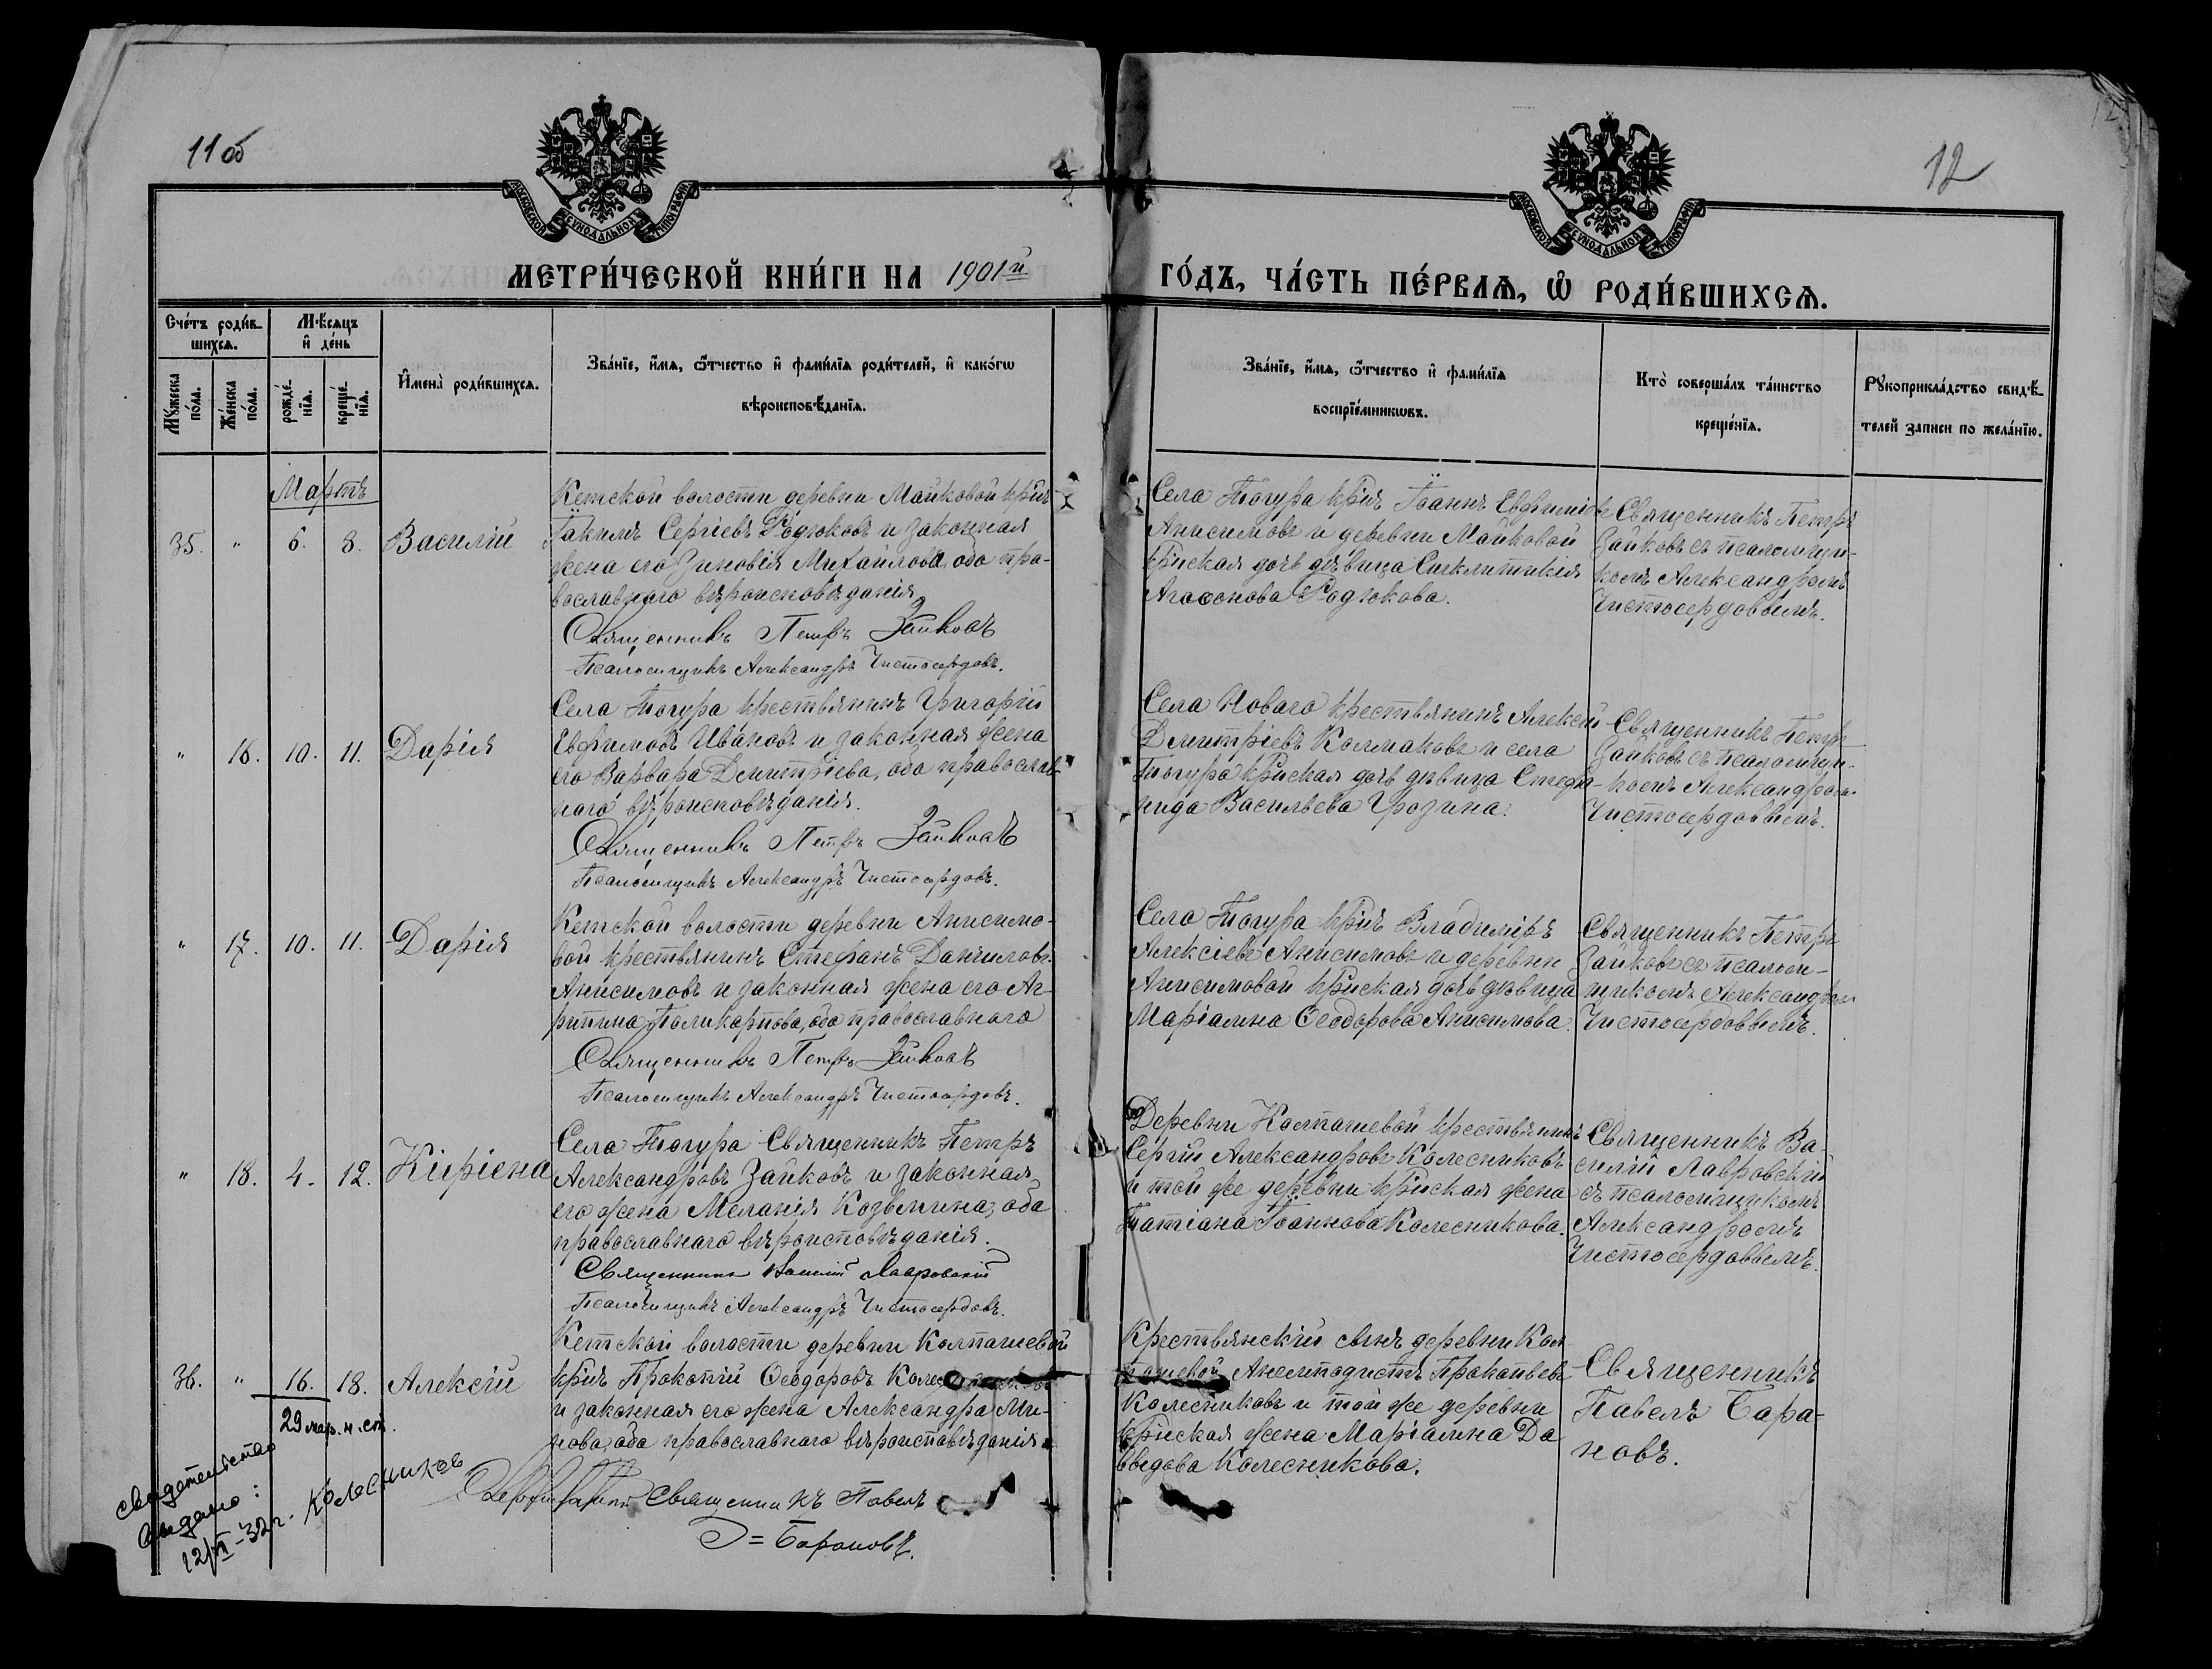 11 об
12
МОСКОВСКОЙ СУНОДАЛЬНОЙ ТИПОГРАФІИ
МОСКОВСКОЙ СУНОДАЛЬНОЙ ТИПОГРАФІИ
МЕТРИ́ЧЕСКОЙ КНИ́ГИ НА 1901й
ГО́ДЪ, ЧА́СТЬ ПЕ́РВАѦ, Ѡ҆ РОДИ́ВШИХСѦ.
Сче́тъ роди́в-
шихсѧ.
Мѣсѧцъ
и҆ де́нь
Мꙋ́жеска
по́ла.
Же́нска
по́ла.
рожде́-
нїѧ.
креще́-
нїѧ.
И҆мена̀ роди́вшихсѧ.
Зва́нїе, и҆́мѧ, ѻ҆́тчество и҆ фами́лїѧ роди́телей, и҆ како́гѡ
вѣроисповѣ́данїѧ.
Зва́нїе, и҆́мѧ, ѻ҆́тчество и҆ фами́лїѧ
воспрїе́мникѡвъ.
Кто̀ соверша́лъ та́инство
креще́нїѧ.
Рꙋкоприкла́дство свидѣ́-
телей записи по жела́нїю.
Мартъ
35. " 6. 8. Василій
Кетской волости деревни Майковой кр҃нъ
Іакимъ Сергіевъ Родюковъ и законная
жена его Зиновія Михайлова, оба пра-
вославнаго вѣроисповѣданія
Священникъ Петръ Зайковъ
Псаломщикъ Александръ Чистосердовъ.
Села Тогура кр҃нъ Іоаннъ Евфиміевъ
Анисимовъ и деревни Майковой
кр҃нская дочь дѣвица Синклитикія
Родюкова.
Священникъ Петръ
Зайковъ съ псаломщи-
комъ Александромъ
Чистосердовымъ.
" 16. 10. 11. Дарія
Села Тогура крестьянинъ Григорій
Евфимовъ Ивановъ и законная жена
его Варвара Димитріева, оба православ-
наго вѣроисповѣданія.
Священникъ Петръ Зайковъ
Псаломщикъ Александръ Чистосердовъ.
Села Новаго крестьянинъ Алексѣй
Димитріевъ Колмаковъ и села
Тогура кр҃нская дочь дѣвица Стефа-
нида Васильева Грозина.
Священникъ Петръ
Зайковъ съ псаломщи-
комъ Александромъ
Чистосердовымъ.
" 17. 10. 11. Дарія
Кетской волости деревни Анисимо-
вой крестьянинъ Стефанъ Даниловъ
Анисимовъ и законная жена его Аг-
рипина Поликарпова, оба православнаго
Священникъ Петръ Зайковъ
Псаломщикъ Александръ Чистосердовъ.
Села Тогура кр҃нъ Владиміръ
Алексіевъ Анисимовъ и деревни
Анисимовой кр҃нская дочь дѣвица
Маріамна Ѳеодорова Анисимова.
Священникъ Петръ
Зайковъ съ псалом-
щикомъ Александромъ
Чистосердовымъ.
" 18. 4. 12. Кіріена
Села Тогура Священникъ Петръ
Александровъ Зайковъ и законная
его жена Меланія Козьмина, оба
православнаго вѣроисповѣданія.
Священникъ Василій Лавровскій
Псаломщикъ Александръ Чистосердовъ.
Деревни Колпашевой крестьянинъ
Сергій Александровъ Колесниковъ
и той же деревни кр҃нская жена
Татіана Іоаннова Колесникова.
Священникъ Ва-
силій Лавровскій
съ псаломщикомъ
Александромъ
Чистосердовымъ.
36. " 16. 18. Алексій
29 мар. н. ст.
Кетской волости деревни Колпашевой
кр҃нъ Прокопій Ѳеодоровъ Колесниковъ
и законная его жена Александра Ми-
нова, оба православнаго вѣроисповѣданія
Священникъ Павелъ
Барановъ.
Крестьянскій сынъ деревни Кол-
пашевой Анемподистъ Прокопьевъ
Колесниковъ и той же деревни
кр҃нская жена Маріамна Да
видова Колесникова.
Священникъ
Павелъ Бара-
новъ.
свидетельство
выдано:
12/VI-32 г. Колесников